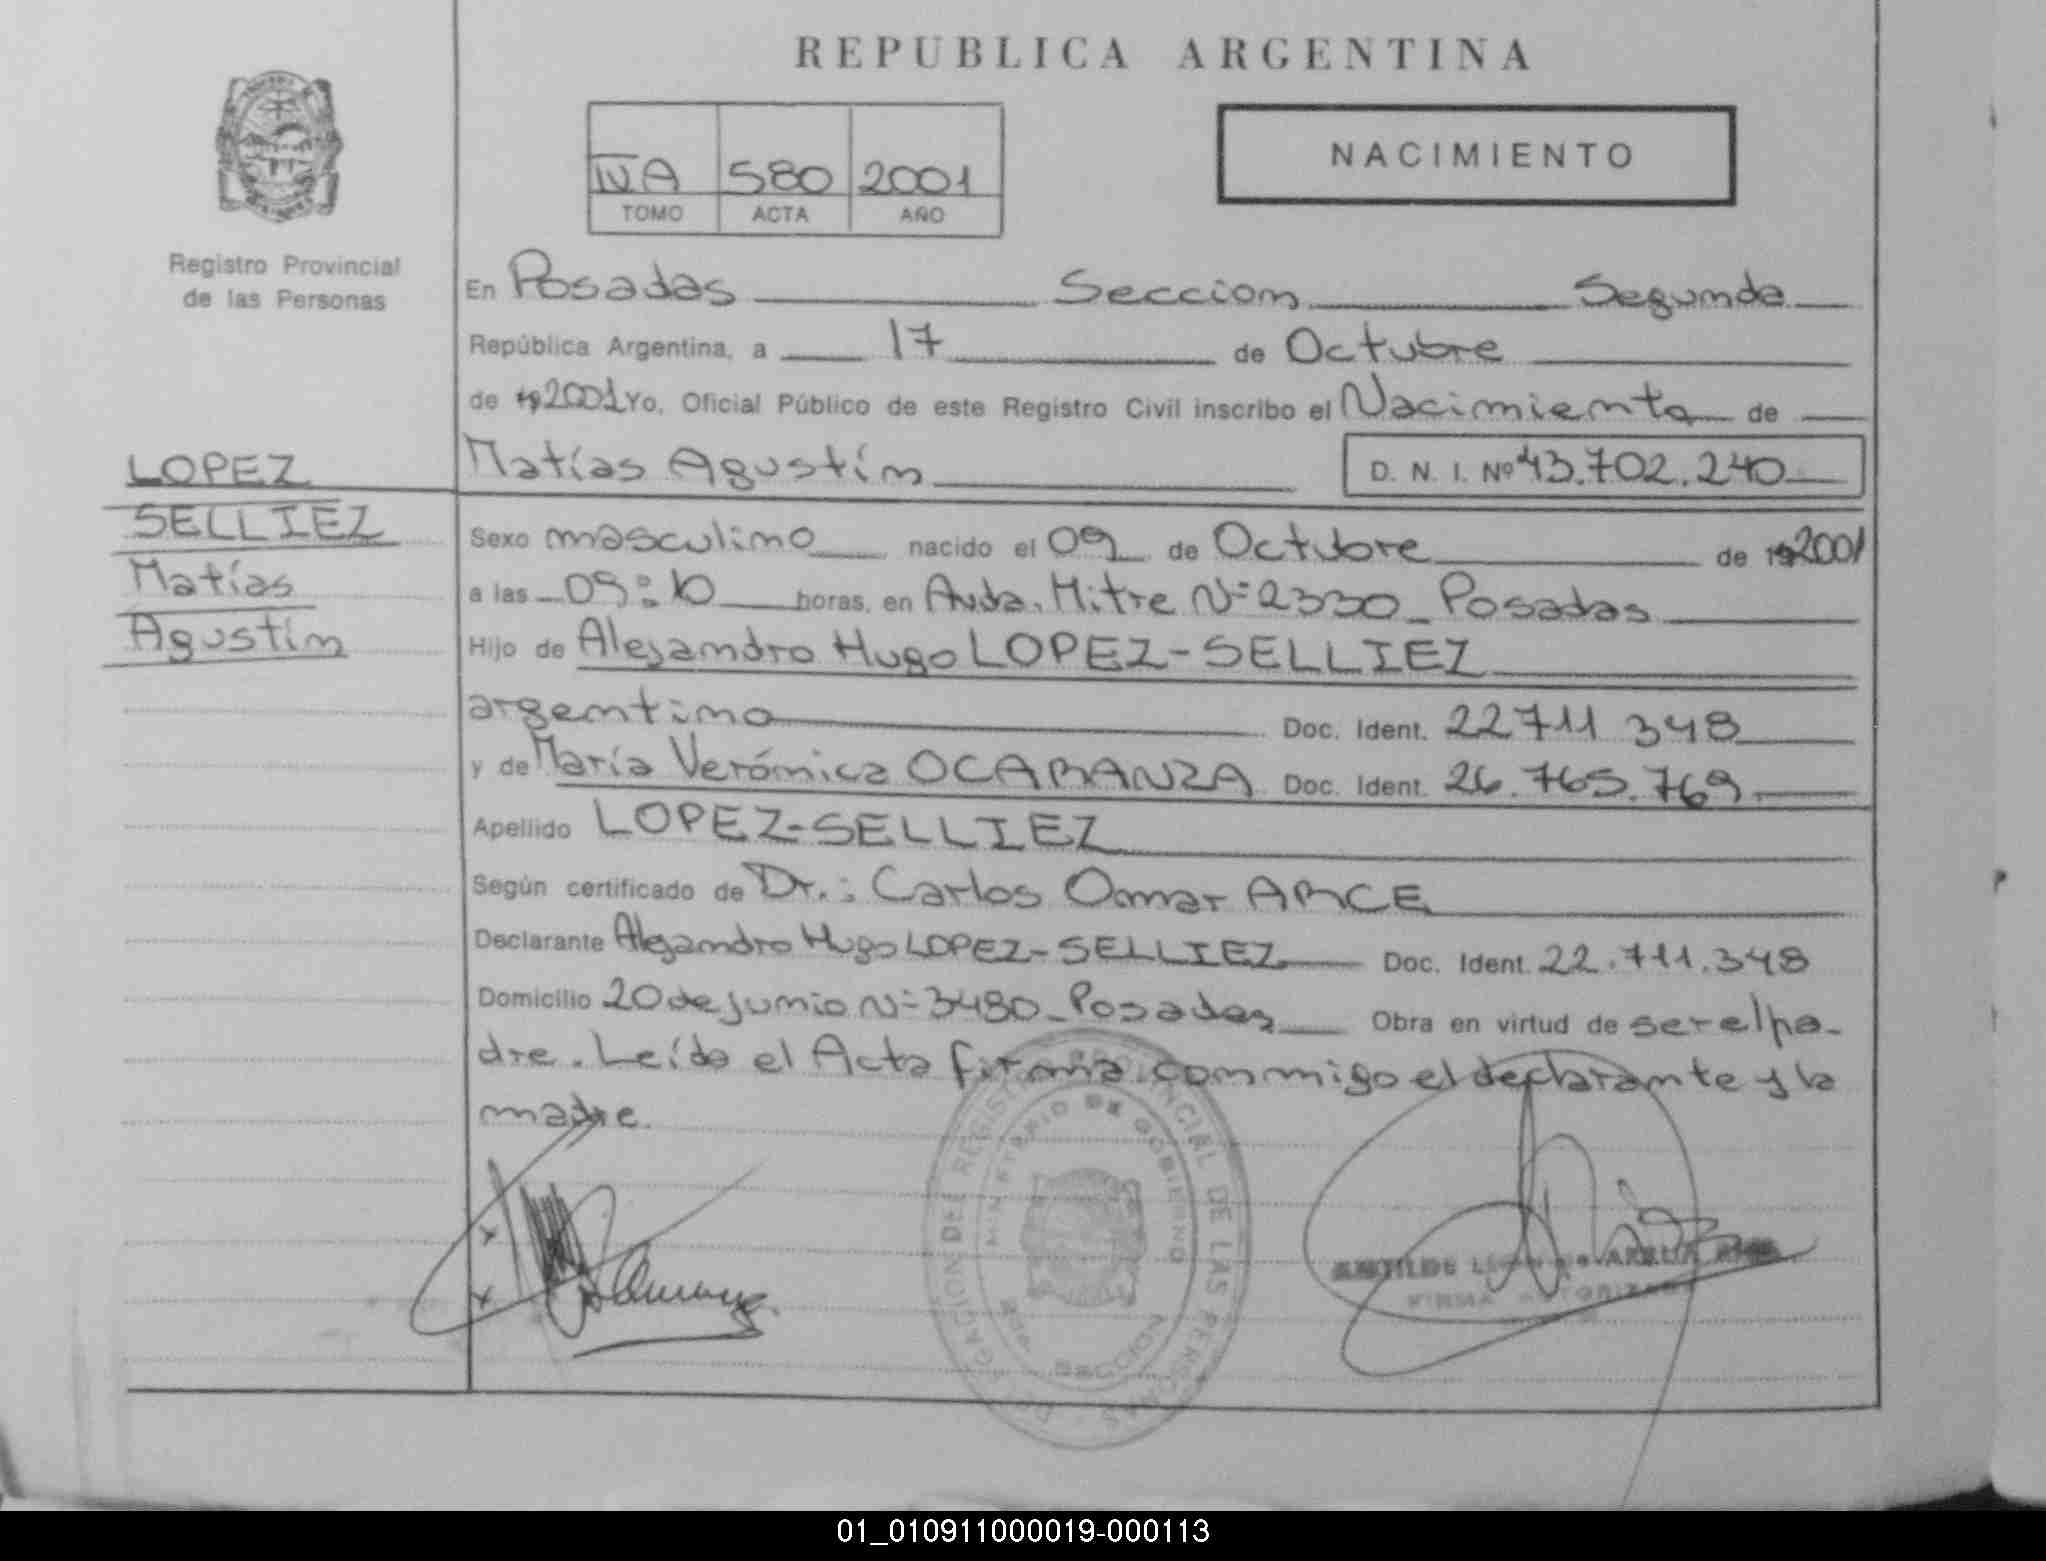 REPUBLICA ARGENTINA
IVA 580 2001
TOMO ACTA AÑO
NACIMIENTO
Registro Provincial
de las Personas
En Posadas Seccion Segunda
República Argentina, a 17 de Octubre
de 192001 Yo, Oficial Público de este Registro Civil inscribo el Nacimiento de
Matías Agustín D. N. I. Nº 43.702.240
LOPEZ
SELLIEZ
Matías
Agustín
Sexo masculino nacido el 09 de Octubre de 192001
a las 09:10 horas, en Avda. Mitre Nº 2330 - Posadas
Hijo de Alejandro Hugo LOPEZ-SELLIEZ
argentino Doc. Ident. 22 711 348
y de María Verónica OCARANZA Doc. Ident. 26.765.769
Apellido LOPEZ-SELLIEZ
Según certificado de Dr.: Carlos Omar ARCE
Declarante Alejandro Hugo LOPEZ-SELLIEZ Doc. Ident. 22.711.348
Domicilio 20 de junio Nº 3480 - Posadas Obra en virtud de ser el pa-
dre. Leída el Acta firma conmigo el declarante y la
madre.
DELEGACION DEL REGISTRO PROVINCIAL DE LAS PERSONAS
MINISTERIO DE GOBIERNO
SECCION
FIRMA AUTORIZADA
01_010911000019-000113